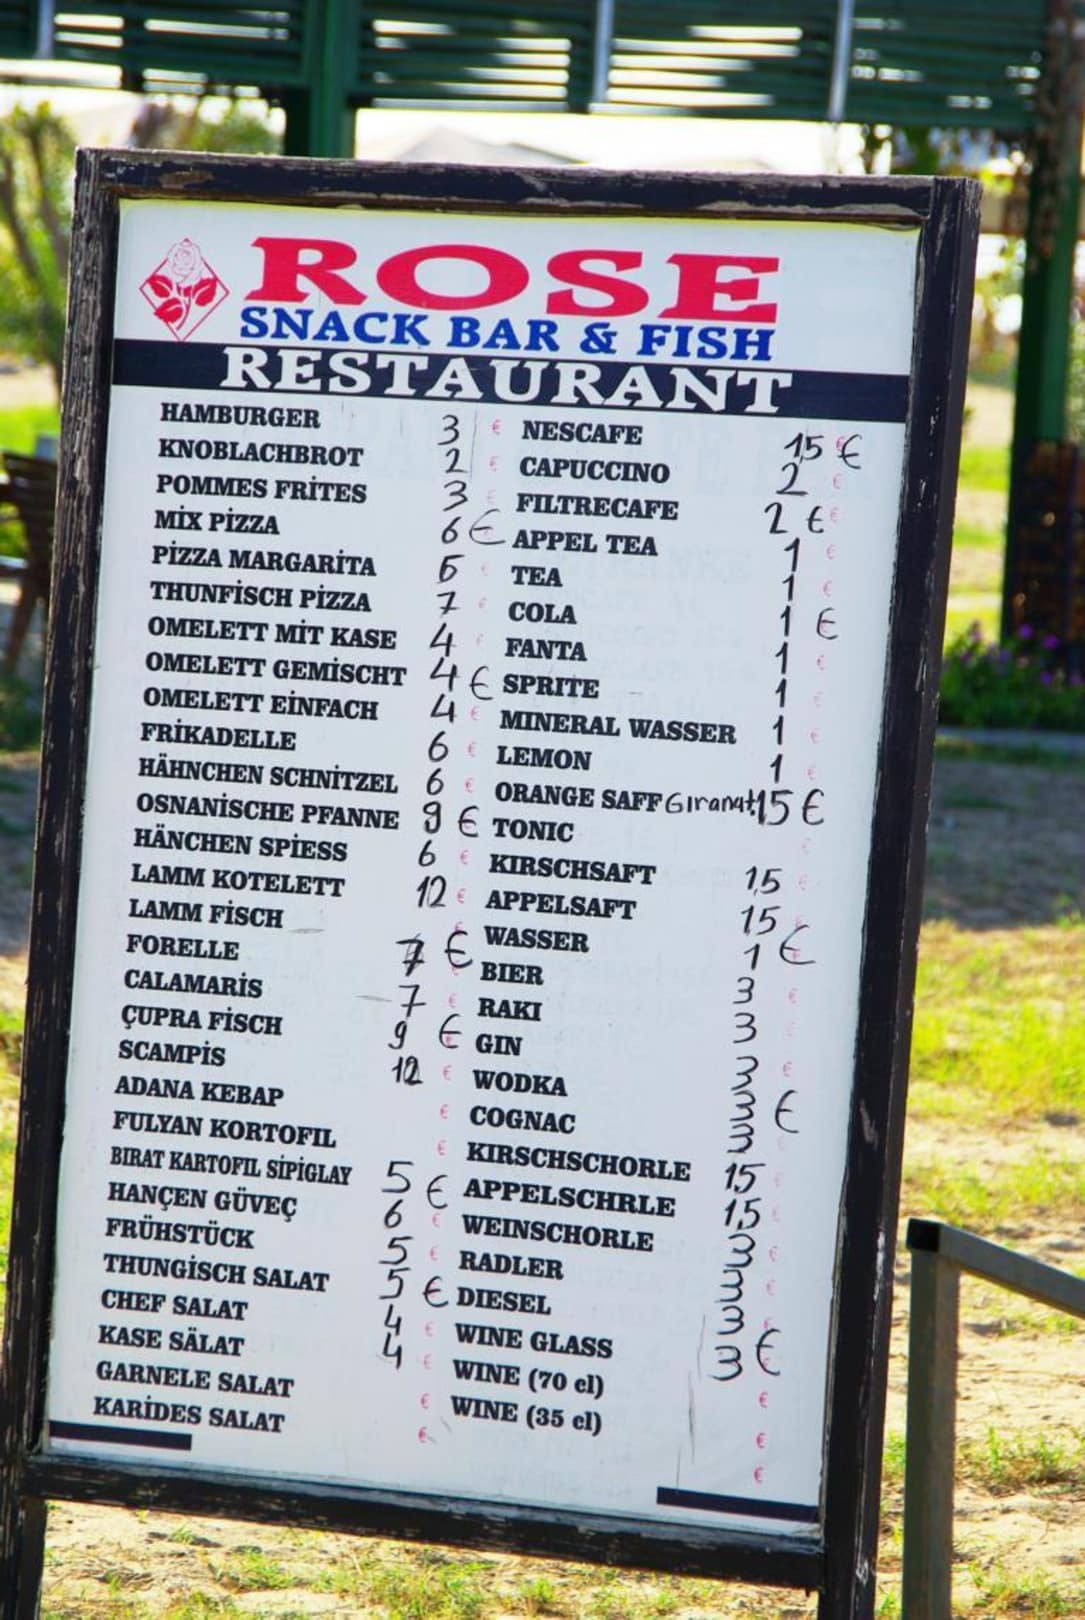 ROSE
SNACK BAR & FISH
RESTAURANT
HAMBURGER 3 €
KNOBLACHBROT 2 €
POMMES FRİTES 3 €
MİX PİZZA 6 €
PİZZA MARGARİTA 5 €
THUNFİSCH PİZZA 7 €
OMELETT MİT KASE 4 €
OMELETT GEMİSCHT 4 €
OMELETT EİNFACH 4 €
FRİKADELLE 6 €
HÄHNCHEN SCHNİTZEL 6 €
OSNANİSCHE PFANNE 9 €
HÄNCHEN SPİESS 6 €
LAMM KOTELETT 12 €
LAMM FİSCH €
FORELLE 7 €
CALAMARİS 7 €
ÇUPRA FİSCH 9 €
SCAMPİS 12 €
ADANA KEBAP €
FULYAN KORTOFIL €
BIRAT KARTOFIL SİPİGLAY 5 €
HANÇEN GÜVEÇ 6 €
FRÜHSTÜCK 5 €
THUNGİSCH SALAT 5 €
CHEF SALAT 4 €
KASE SÄLAT 4 €
GARNELE SALAT €
KARİDES SALAT €
NESCAFE 1,5 €
CAPUCCINO 2 €
FILTRECAFE 2 €
APPEL TEA 1 €
TEA 1 €
COLA 1 €
FANTA 1 €
SPRITE 1 €
MINERAL WASSER 1 €
LEMON 1 €
ORANGE SAFF Giranat 15 €
TONIC €
KIRSCHSAFT 1,5 €
APPELSAFT 15 €
WASSER 1 €
BIER 3 €
RAKI 3 €
GIN 3 €
WODKA 3 €
COGNAC 3
KIRSCHSCHORLE 15 €
APPELSCHRLE 1,5 €
WEINSCHORLE 3 €
RADLER 3 €
DIESEL 3 €
WINE GLASS 3 €
WINE (70 cl) €
WINE (35 cl) €